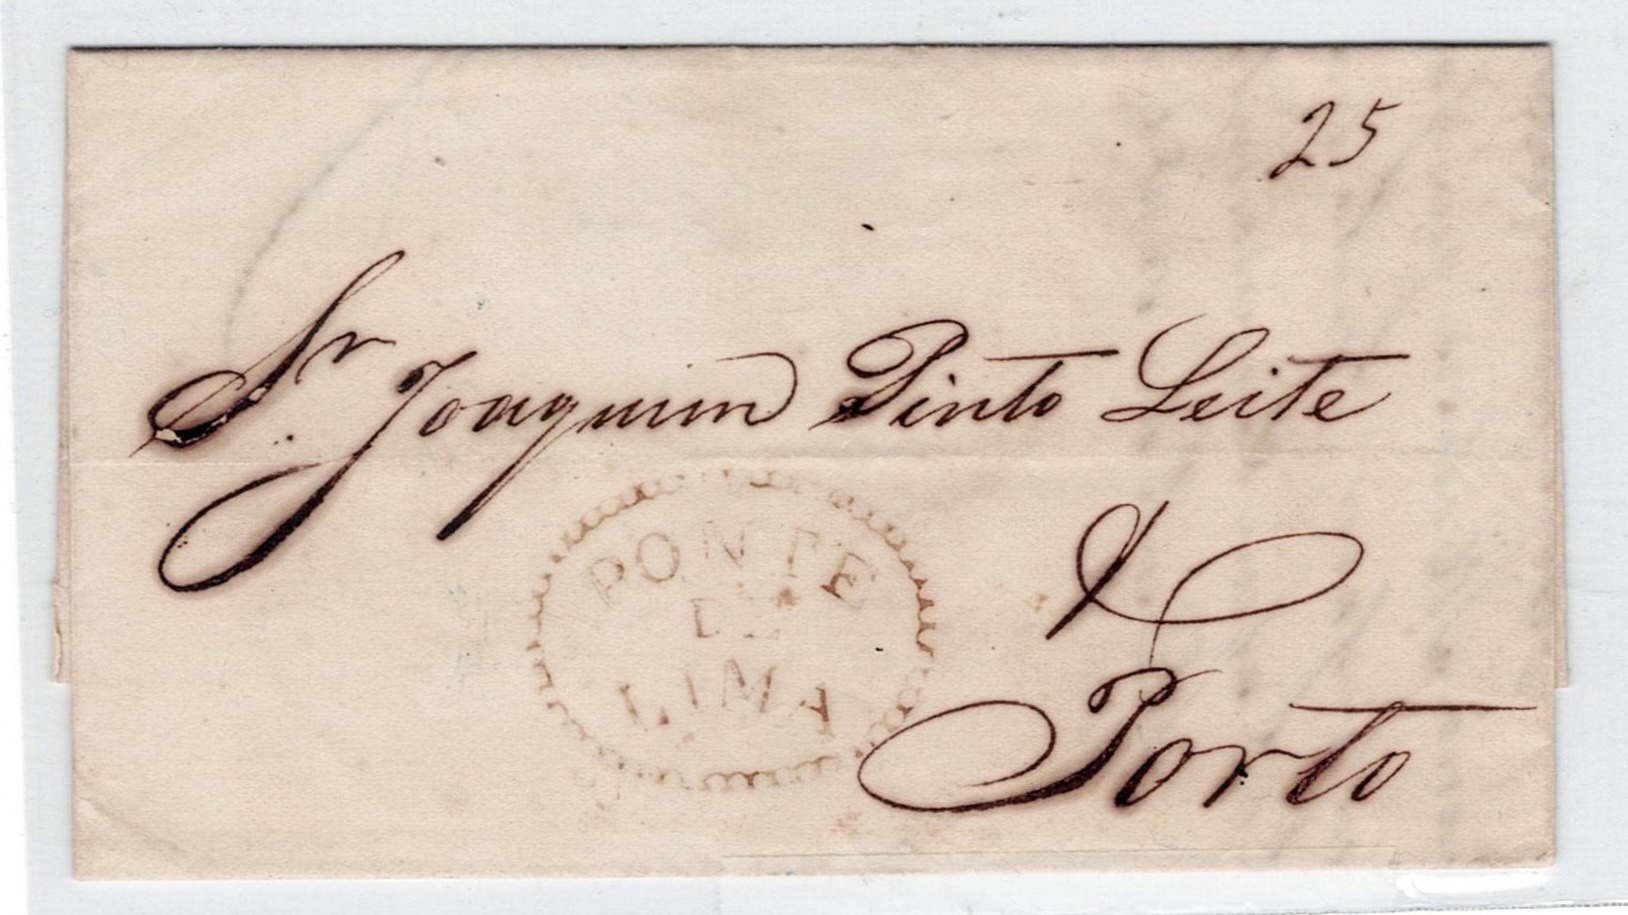 25
Sr. Joaquim Pinto Leite
PONTE
DE
LIMA
Porto